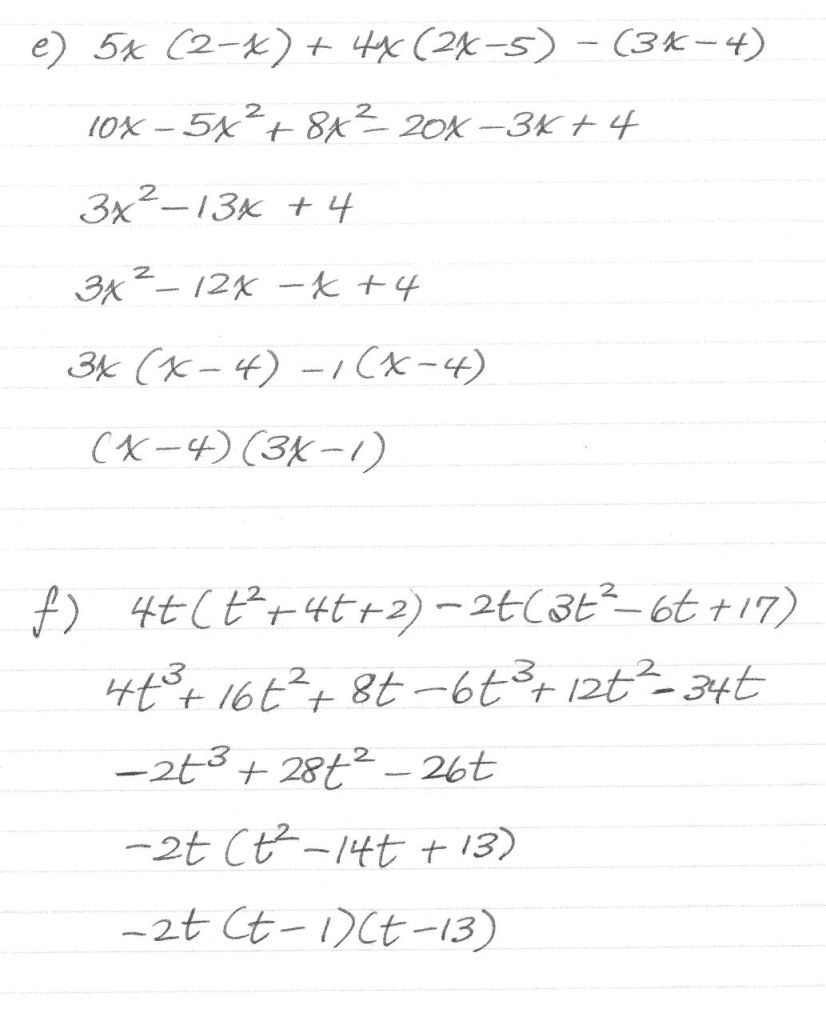 e) 5x (2-x) + 4x (2x-5) - (3x-4)
10x - 5x² + 8x² - 20x - 3x + 4
3x² - 13x + 4
3x² - 12x - x + 4
3x (x-4) -1 (x-4)
(x-4) (3x-1)
f) 4t (t² + 4t + 2) - 2t (3t² - 6t + 17)
4t³ + 16t² + 8t - 6t³ + 12t² - 34t
-2t³ + 28t² - 26t
-2t (t² - 14t + 13)
-2t (t-1)(t-13)